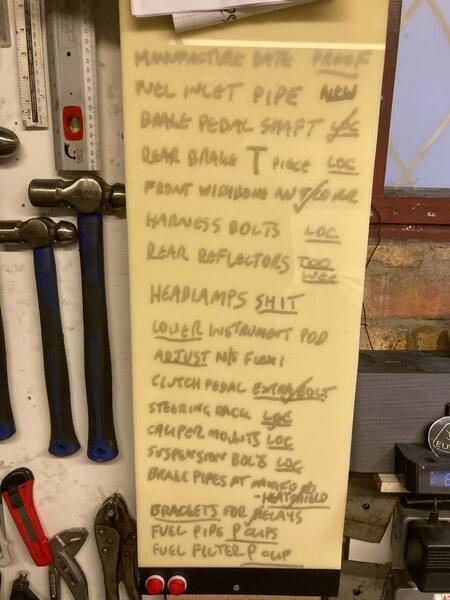 MANUFACTURE DATE PROOF
FUEL INLET PIPE NEW
BRAKE PEDAL SHAFT
REAR BRAKE T PIECE LOC
FRONT WISHBONE
HARNESS BOLTS LOC
REAR REFLECTORS TOO
WEE
HEADLAMPS SHIT
LOWER INSTRUMENT POD
ADJUST N/S FLEXI
CLUTCH PEDAL EXTRA BOLT
STEERING RACK LOC
CALIPER MOUNTS LOC
SUSPENSION BOLTS LOC
BRAKE PIPES AT
-HEATSHIELD
BRACKETS FOR RELAYS
FUEL PIPE P CLIPS
FUEL FILTER P CLIP